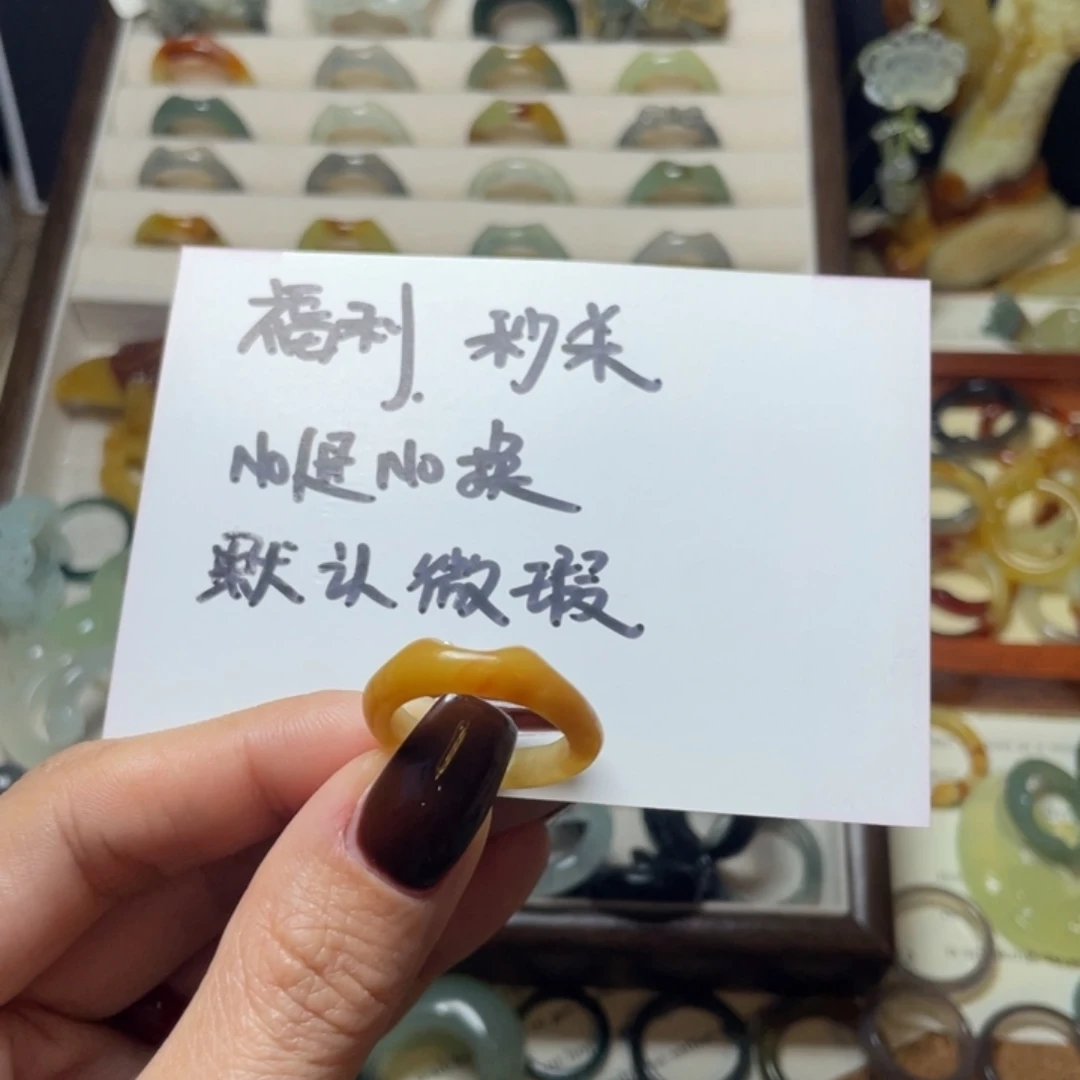 福利. 秒杀
No退No换
默认微瑕